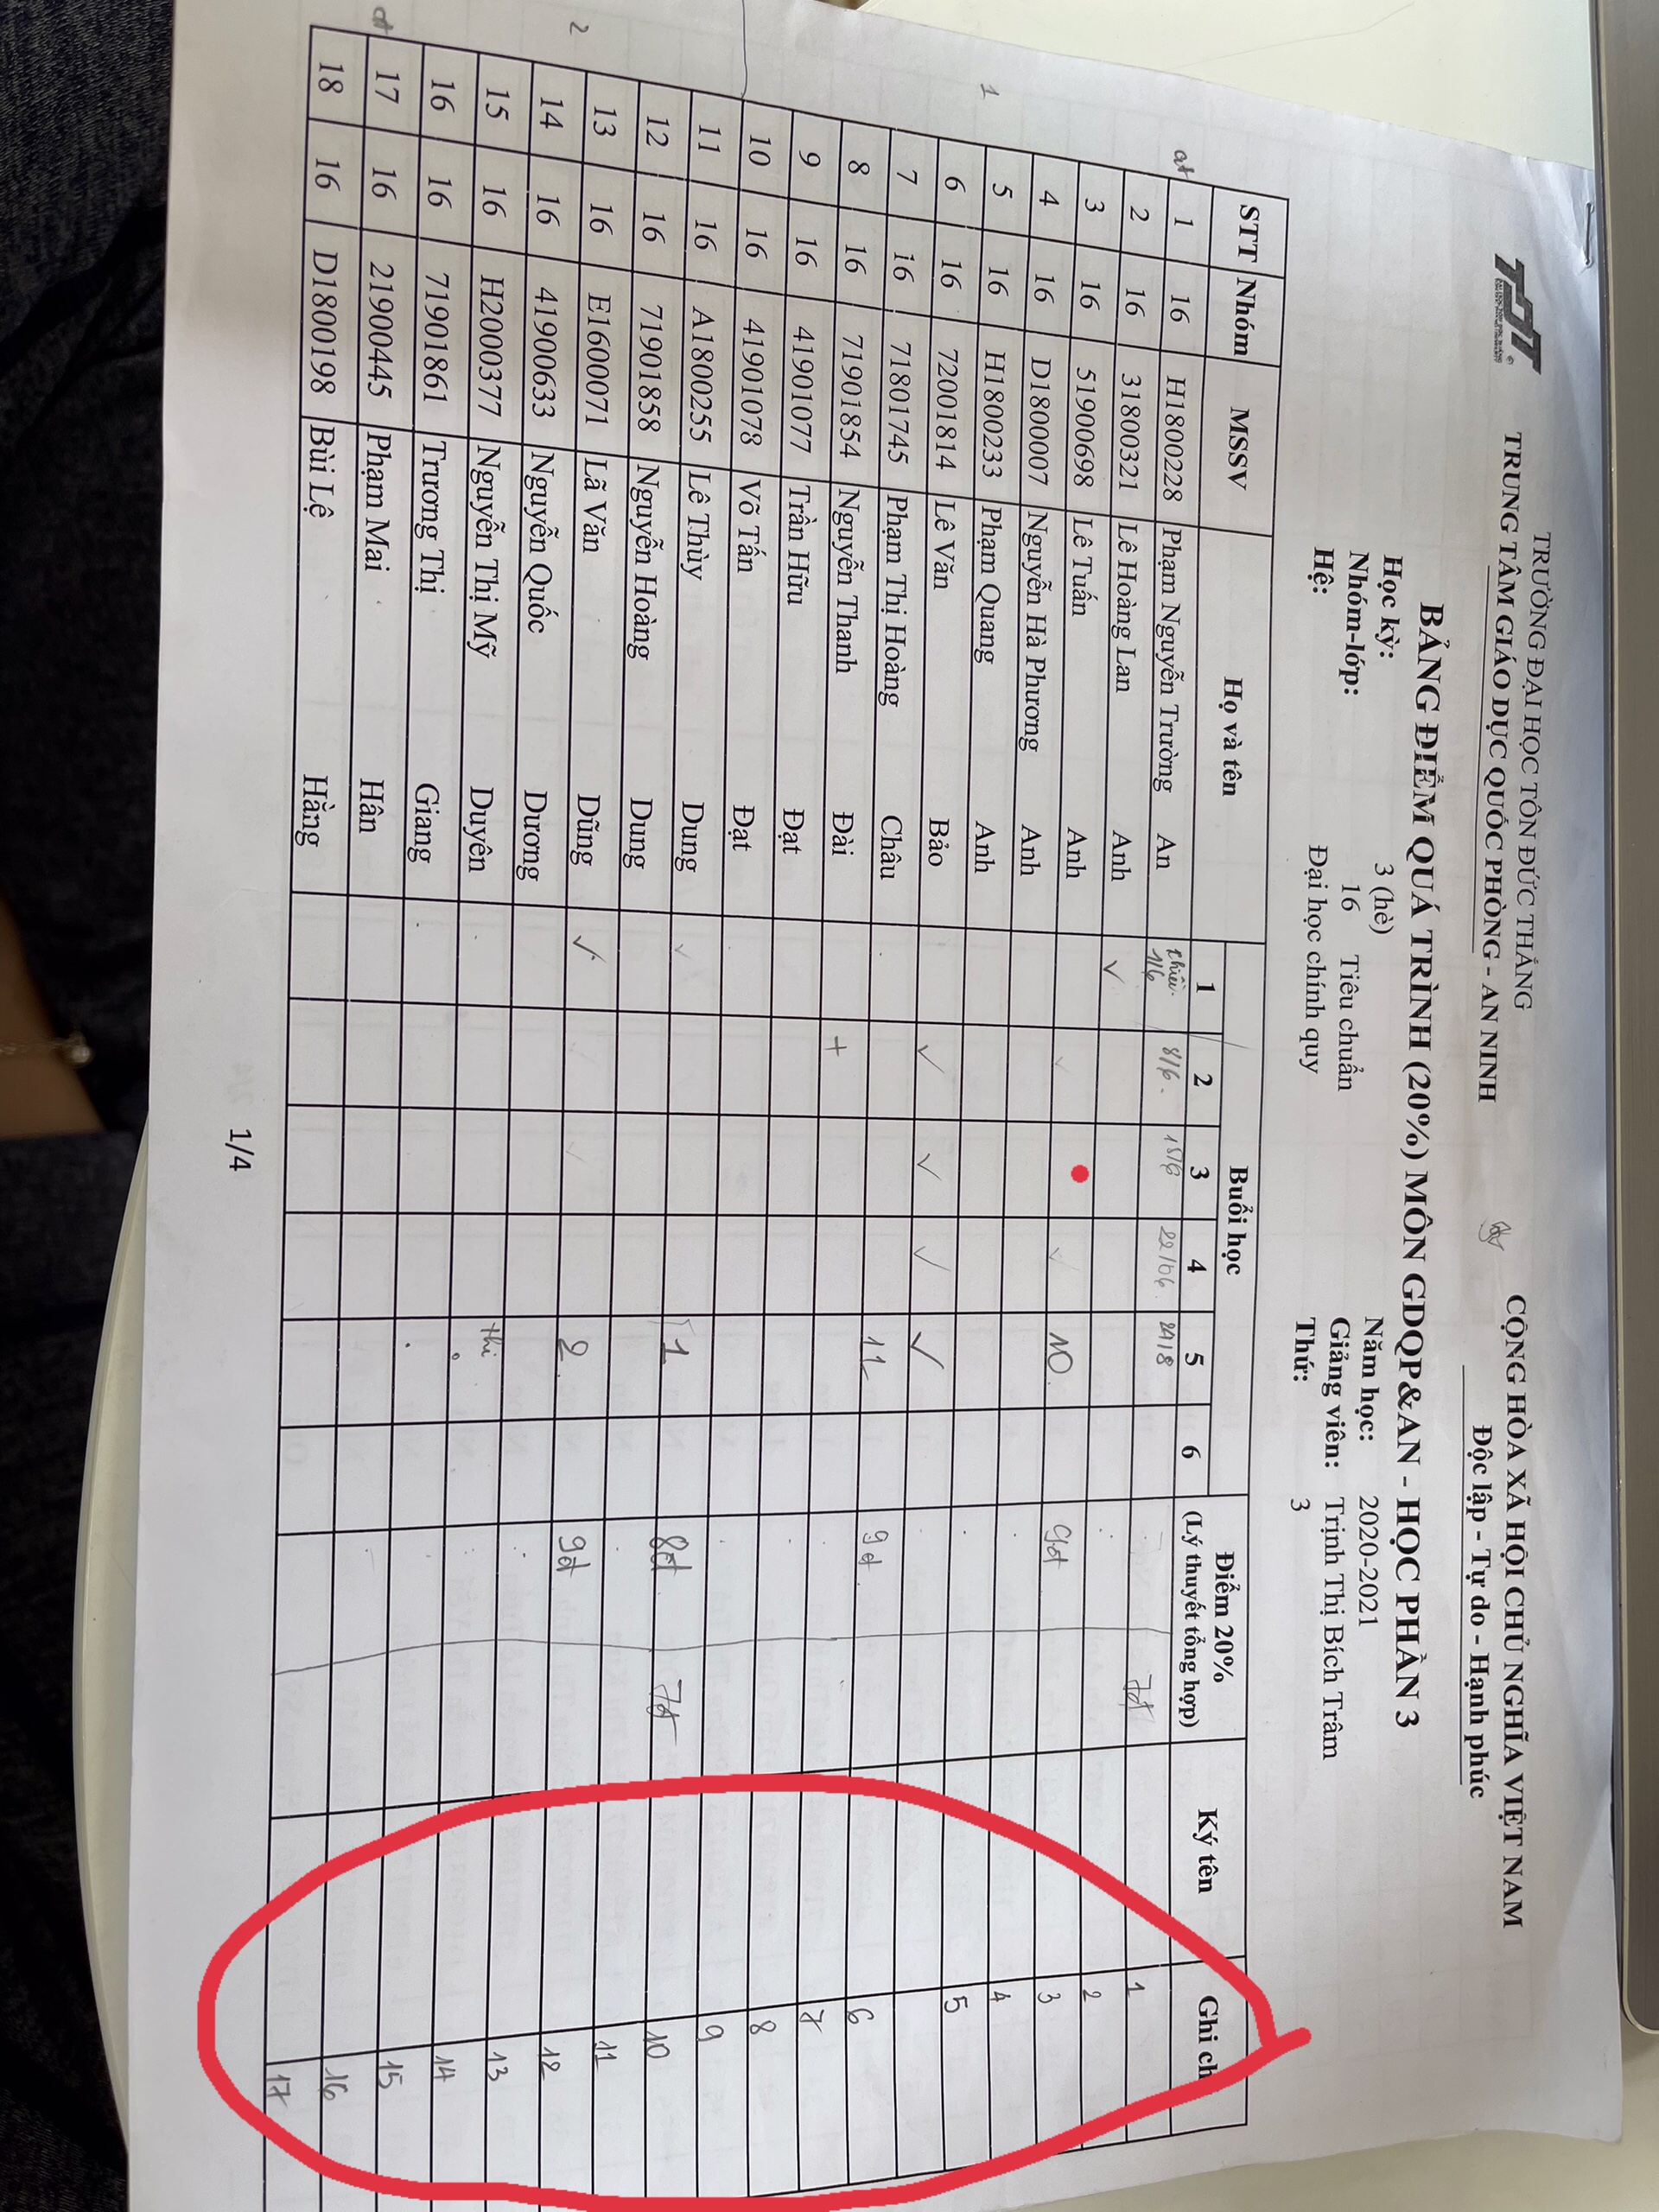 TRƯỜNG ĐẠI HỌC TÔN ĐỨC THẮNG
TRUNG TÂM GIÁO DỤC QUỐC PHÒNG - AN NINH
CỘNG HÒA XÃ HỘI CHỦ NGHĨA VIỆT NAM
Độc lập - Tự do - Hạnh phúc
BẢNG ĐIỂM QUÁ TRÌNH (20%) MÔN GDQP&AN - HỌC PHẦN 3
Học kỳ: 3 (hè)
Năm học: 2020-2021
Nhóm-lớp: 16 Tiêu chuẩn
Giảng viên: Trịnh Thị Bích Trâm
Hệ: Đại học chính quy
Thứ: 3
STT Nhóm MSSV Họ và tên Buổi học Điểm 20% Ký tên Ghi ch
1 2 3 4 5 6 (Lý thuyết tổng hợp)
1 16 H1800228 Phạm Nguyễn Trường An 1/6 8/6. 15/6 22/06 7đ 1
2 16 31800321 Lê Hoàng Lan Anh ✓ 2
3 16 51900698 Lê Tuấn Anh ✓ ✓ 10. 9đ 3
4 16 D1800007 Nguyễn Hà Phương Anh 4
1 5 16 H1800233 Phạm Quang Anh 5
6 16 72001814 Lê Văn Bảo ✓ ✓ ✓ ✓
7 16 71801745 Phạm Thị Hoàng Châu 11 9đ. 6
8 16 71901854 Nguyễn Thanh Đài + 7
9 16 41901077 Trần Hữu Đạt 8
10 16 41901078 Võ Tấn Đạt 9
11 16 A1800255 Lê Thùy Dung ✓ 1 8đ 7đ 10
12 16 71901858 Nguyễn Hoàng Dung 11
2 13 16 E1600071 Lã Văn Dũng ✓ ✓ ✓ 2. 9đ 12
14 16 41900633 Nguyễn Quốc Dương 13
15 16 H2000377 Nguyễn Thị Mỹ Duyên thi 14
16 16 71901861 Trương Thị Giang 15
17 16 21900445 Phạm Mai Hân 16
18 16 D1800198 Bùi Lệ Hằng 17
1/4